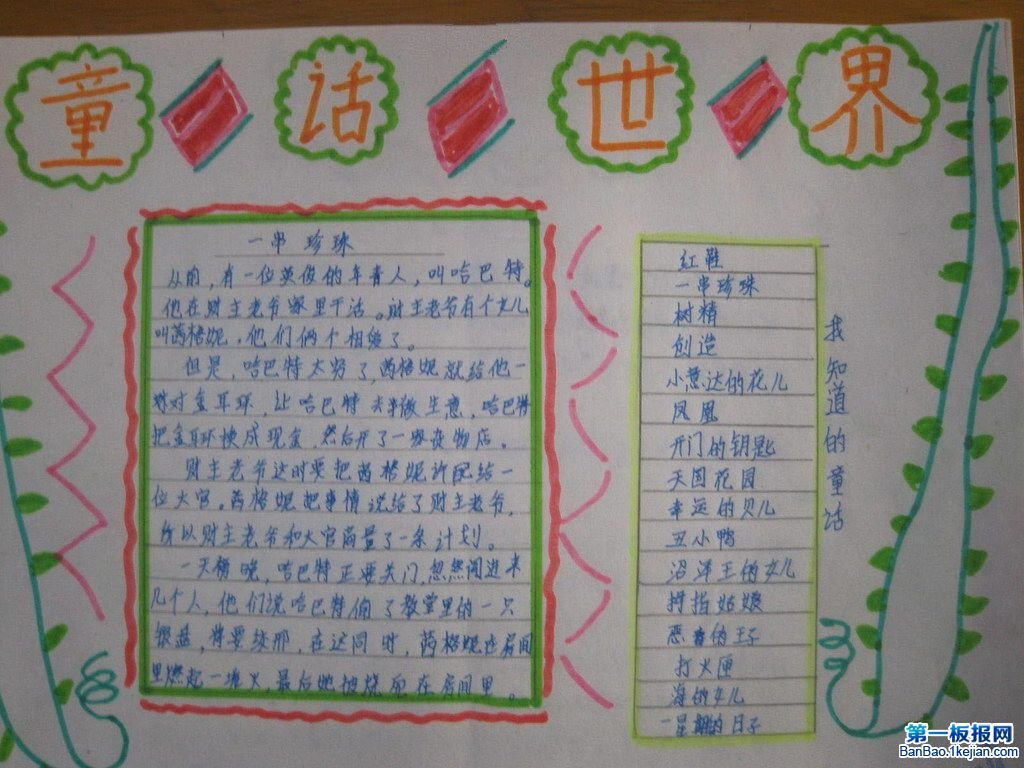 童话世界
一串珍珠
从前,有一位英俊的年青人,叫哈巴特。
他在财主老爷家里干活。财主老爷有个女儿
叫茜格妮,他们俩个相爱了。
但是,哈巴特太穷了,茜格妮就给他一
对金耳环,让哈巴特去做生意,哈巴特
把金耳环换成现金,然后开了一家杂物店。
财主老爷这时要把茜格妮许配给一
位大官。茜格妮把事情说给了财主老爷,
所以财主老爷和大官商量了一条计划。
一天傍晚,哈巴特正要关门,忽然闯进来
几个人,他们说哈巴特偷了教堂里的一只
银盘,将要绞刑,在这同时,茜格妮在房间
里燃起一堆火,最后她被烧死在房间里。
我知道的童话
红鞋
一串珍珠
树精
创造
小意达的花儿
凤凰
开门的钥匙
天国花园
幸运的贝儿
丑小鸭
沼泽王的女儿
拇指姑娘
恶毒的王子
打火匣
海的女儿
一星期的日子
第一板报网
BanBao.1kejian.com